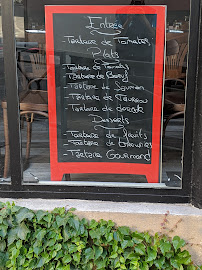 Entrée
Tartare de Tomates
Plats
Tartare de
Tartare de Boeuf
Tartare de Saumon
Tartare de Taureau
Tartare de
Desserts
Tartare de fruits
Tartare de
Tartare Gourmand